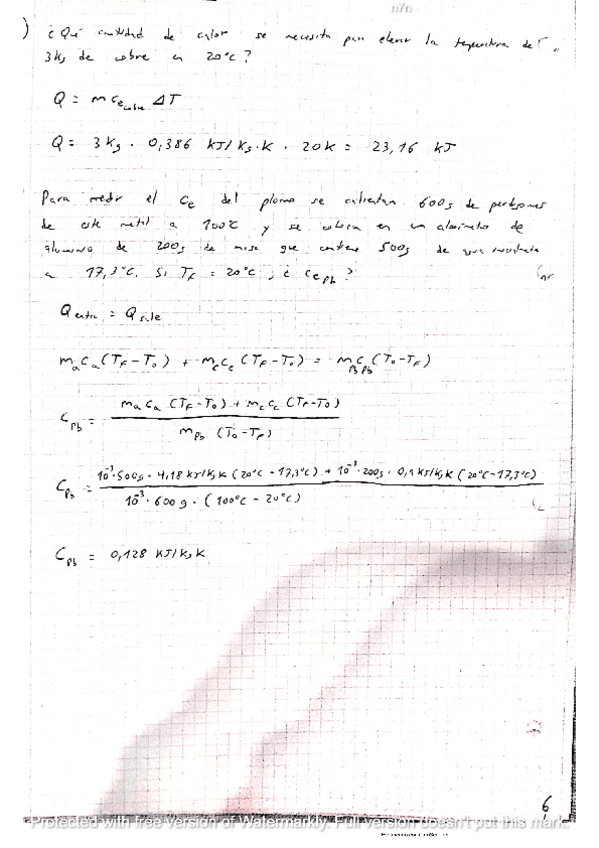 ) ¿Qué cantidad de calor se necesita para elevar la temperatura de
3Kg de cobre en 20°C?
Q = m ce cobre ΔT
Q = 3Kg · 0,386 KJ/Kg·K · 20K = 23,16 KJ
Para medir el ce del plomo se calientan 600g de perdigones
de este metal a 100°C y se colocan en un calorímetro de
aluminio de 200g de masa que contiene 500g de agua
a 17,3°C. Si TF = 20°C, ¿ cePb?
Q entra = Q sale
maca(TF-To) + mccc(TF-To) = mPbcPb(To-TF)
CPb = maca(TF-To) + mccc(TF-To)
mPb (To-TF)
CPb = 10⁻³·500g·4,18 KJ/Kg K (20°C-17,3°C) + 10⁻³·200g·0,9 KJ/Kg K (20°C-17,3°C)
10⁻³·600g·(100°C-20°C)
CPb = 0,128 KJ/Kg K
6
Protected with free version of Watermarkly. Full version doesn't put this mark.